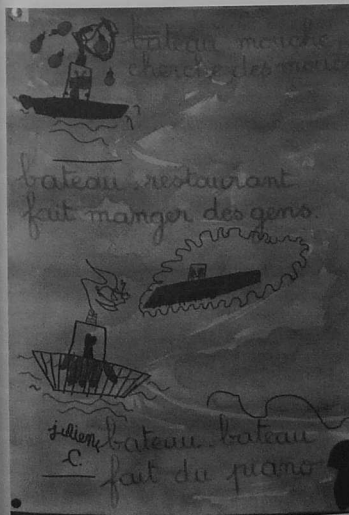 bateau mouche
cherche des mouc
bateau restaurant
fait manger des gens.
julien
C.
bateau bateau
fait du piano